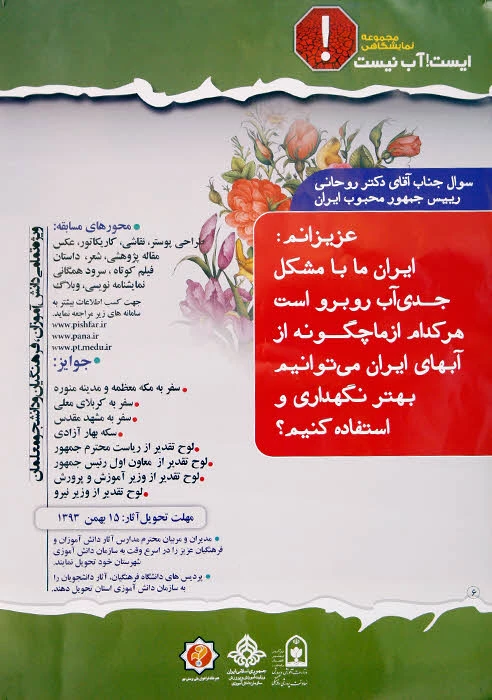 مجموعه
نمایشگاهی
ایست! آب نیست
سوال جناب آقای دکتر روحانی
رییس جمهور محبوب ایران
عزیزانم:
ایران ما با مشکل
جدی‌آب روبرو است
هرکدام ازماچگونه از
آبهای ایران می‌توانیم
بهتر نگهداری و
استفاده کنیم؟
محورهای مسابقه:
طراحی پوستر، نقاشی، کاریکاتور، عکس
مقاله پژوهشی، شعر، داستان
فیلم کوتاه ، سرود همگانی
نمایشنامه نویسی، وبلاگ
جهت کسب اطلاعات بیشتر به
سامانه های زیر مراجعه نماید.
www.pishfar.ir
www.pana.ir
www.pt.medu.ir
جوایز:
سفر به مکه معظمه و مدینه منوره
سفر به کربلای معلی
سفر به مشهد مقدس
سکه بهار آزادی
لوح تقدیر از ریاست محترم جمهور
لوح تقدیر از معاون اول رئیس جمهور
لوح تقدیر از وزیر آموزش و پرورش
لوح تقدیر از وزیر نیرو
ویژه تمامی دانش‌آموزان، فرهنگیان و دانشجو معلمان
مهلت تحویل آثار: ۱۵ بهمن ۱۳۹۳
مدیران و مربیان محترم مدارس آثار دانش آموزان و
فرهنگیان عزیز را در اسرع وقت به سازمان دانش آموزی
شهرستان خود تحویل نمایند.
پردیس های دانشگاه فرهنگیان، آثار دانشجویان را
به سازمان دانش آموزی استان تحویل دهند.
۶
جمهوری اسلامی ایران
وزارت آموزش و پرورش
سازمان دانش آموزی